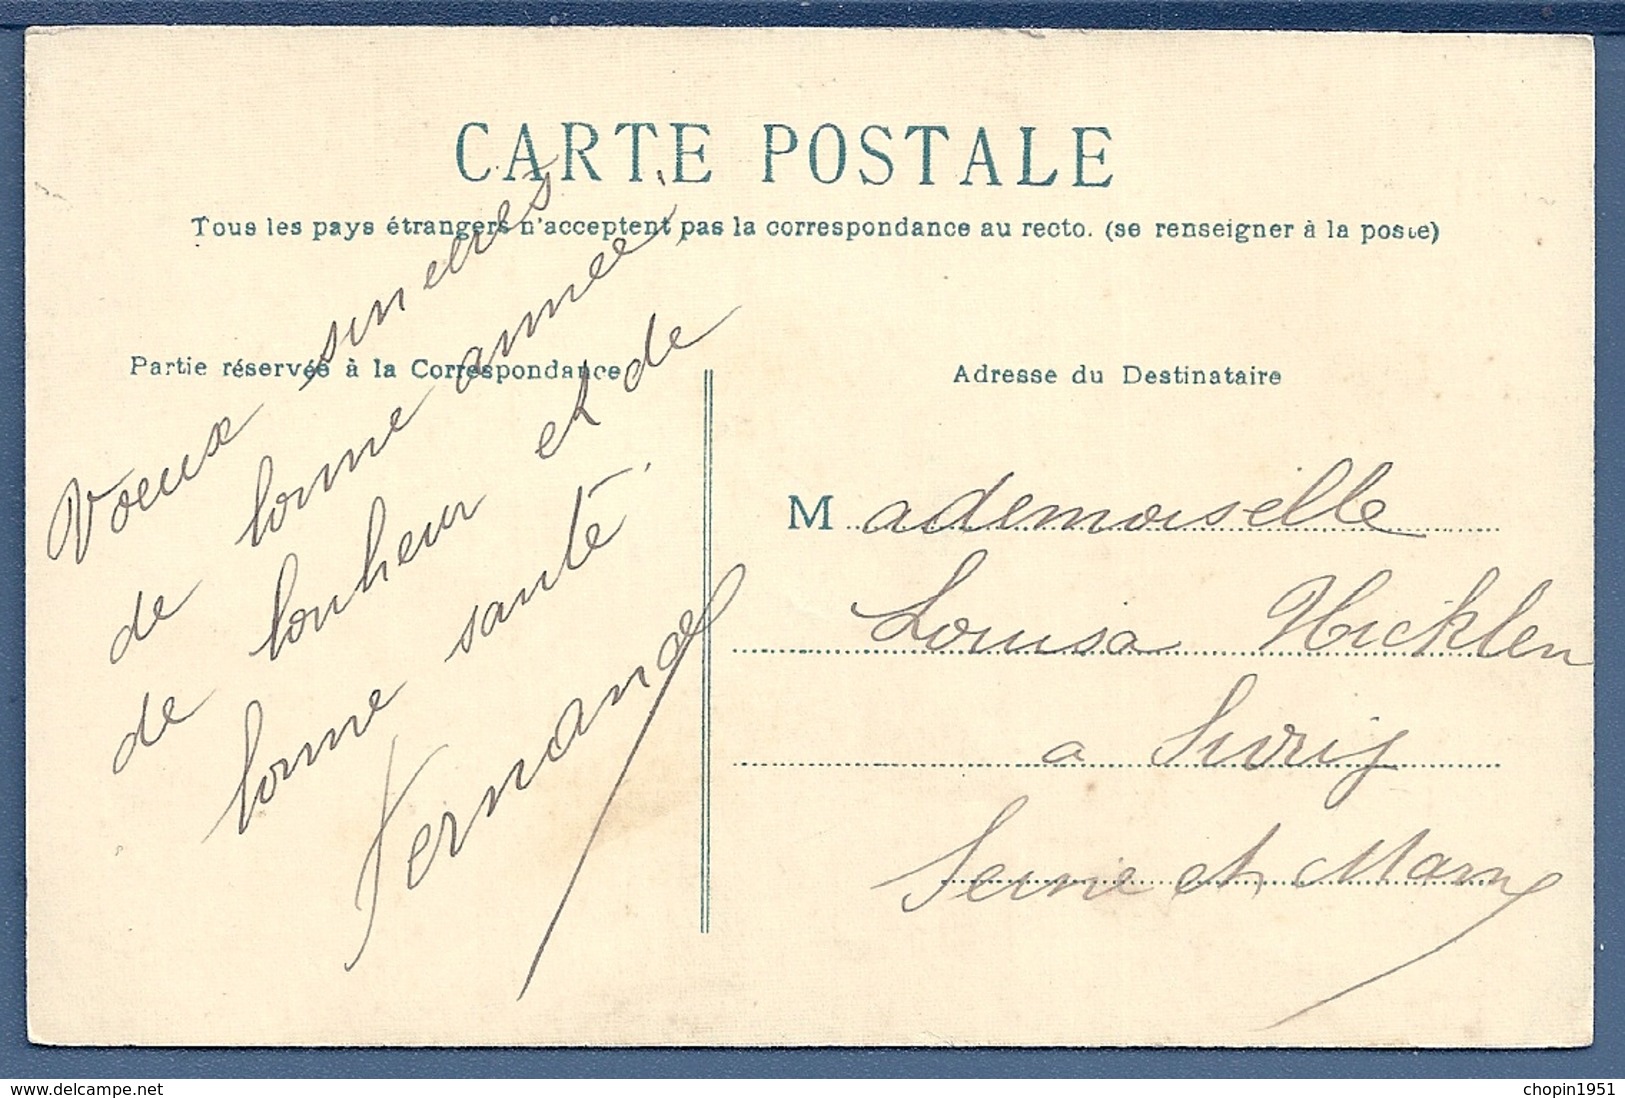 CARTE POSTALE
Tous les pays étrangers n'acceptent pas la correspondance au recto. (se renseigner à la poste)
Partie réservée à la Correspondance
Adresse du Destinataire
Voeux sincères
de bonne année,
de bonheur et de
bonne santé.
Fernand
Mademoiselle
Louisa Hicklen
a Sivry
Seine et Marne
www.delcampe.net
chopin1951